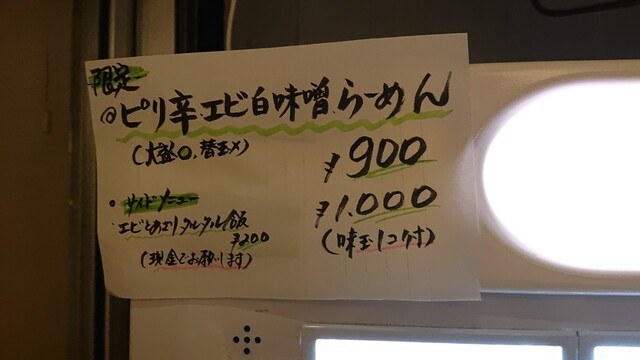 限定
◎ピリ辛エビ白味噌らーめん
(大盛○、替玉×)
¥900
¥1.000
(味玉1コ付)
・サイドメニュー
・エビとめしタルタル飯
¥200
(現金でお願いします)